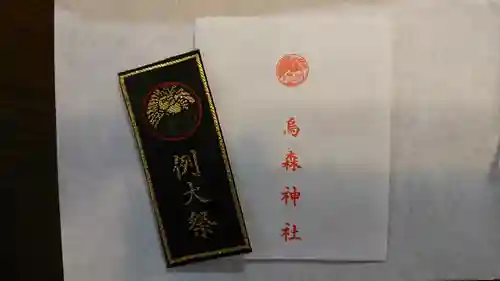 例大祭
烏森神社